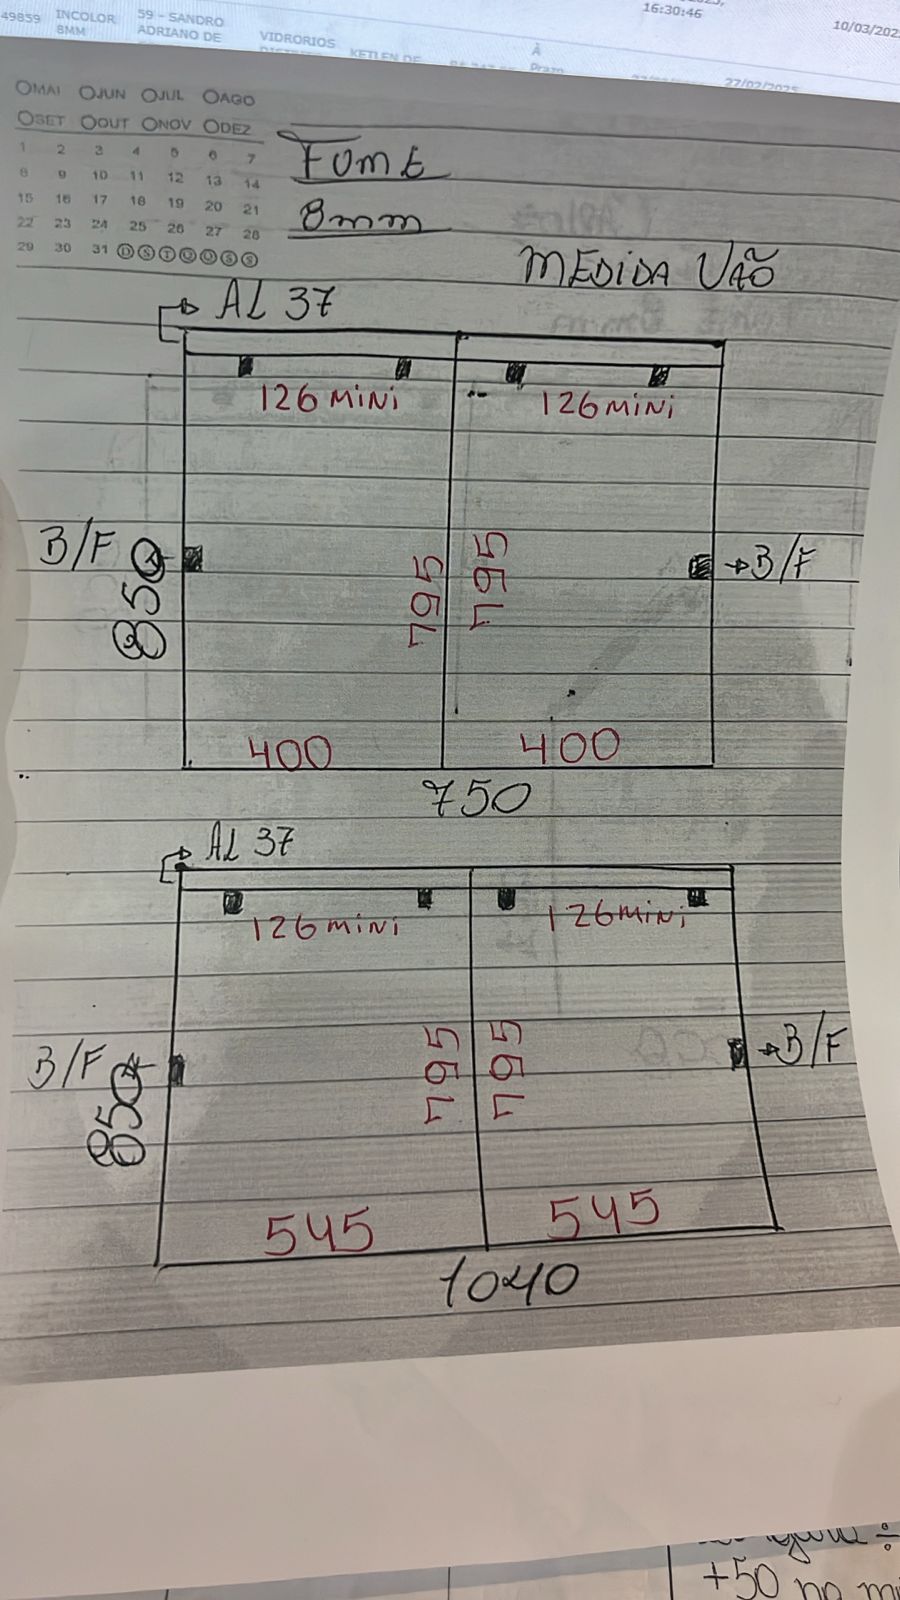 16:30:46
10/03/202
49859 INCOLOR 8MM
59 - SANDRO ADRIANO DE
VIDRORIOS
KETLEN DE
À
Prazo
27/02/2025
MAI JUN JUL AGO
SET OUT NOV DEZ
1 2 3 4 5 6 7
8 9 10 11 12 13 14
15 16 17 18 19 20 21
22 23 24 25 26 27 28
29 30 31 D S T Q Q S S
FUME
8mm
MEDIDA VÃO
AL 37
126 MiNi 126 MiNi
B/F
850
795 795
B/F
400 400
750
AL 37
126 MiNi 126 MiNi
B/F
850
795 795
B/F
545 545
1040
÷
+50 no